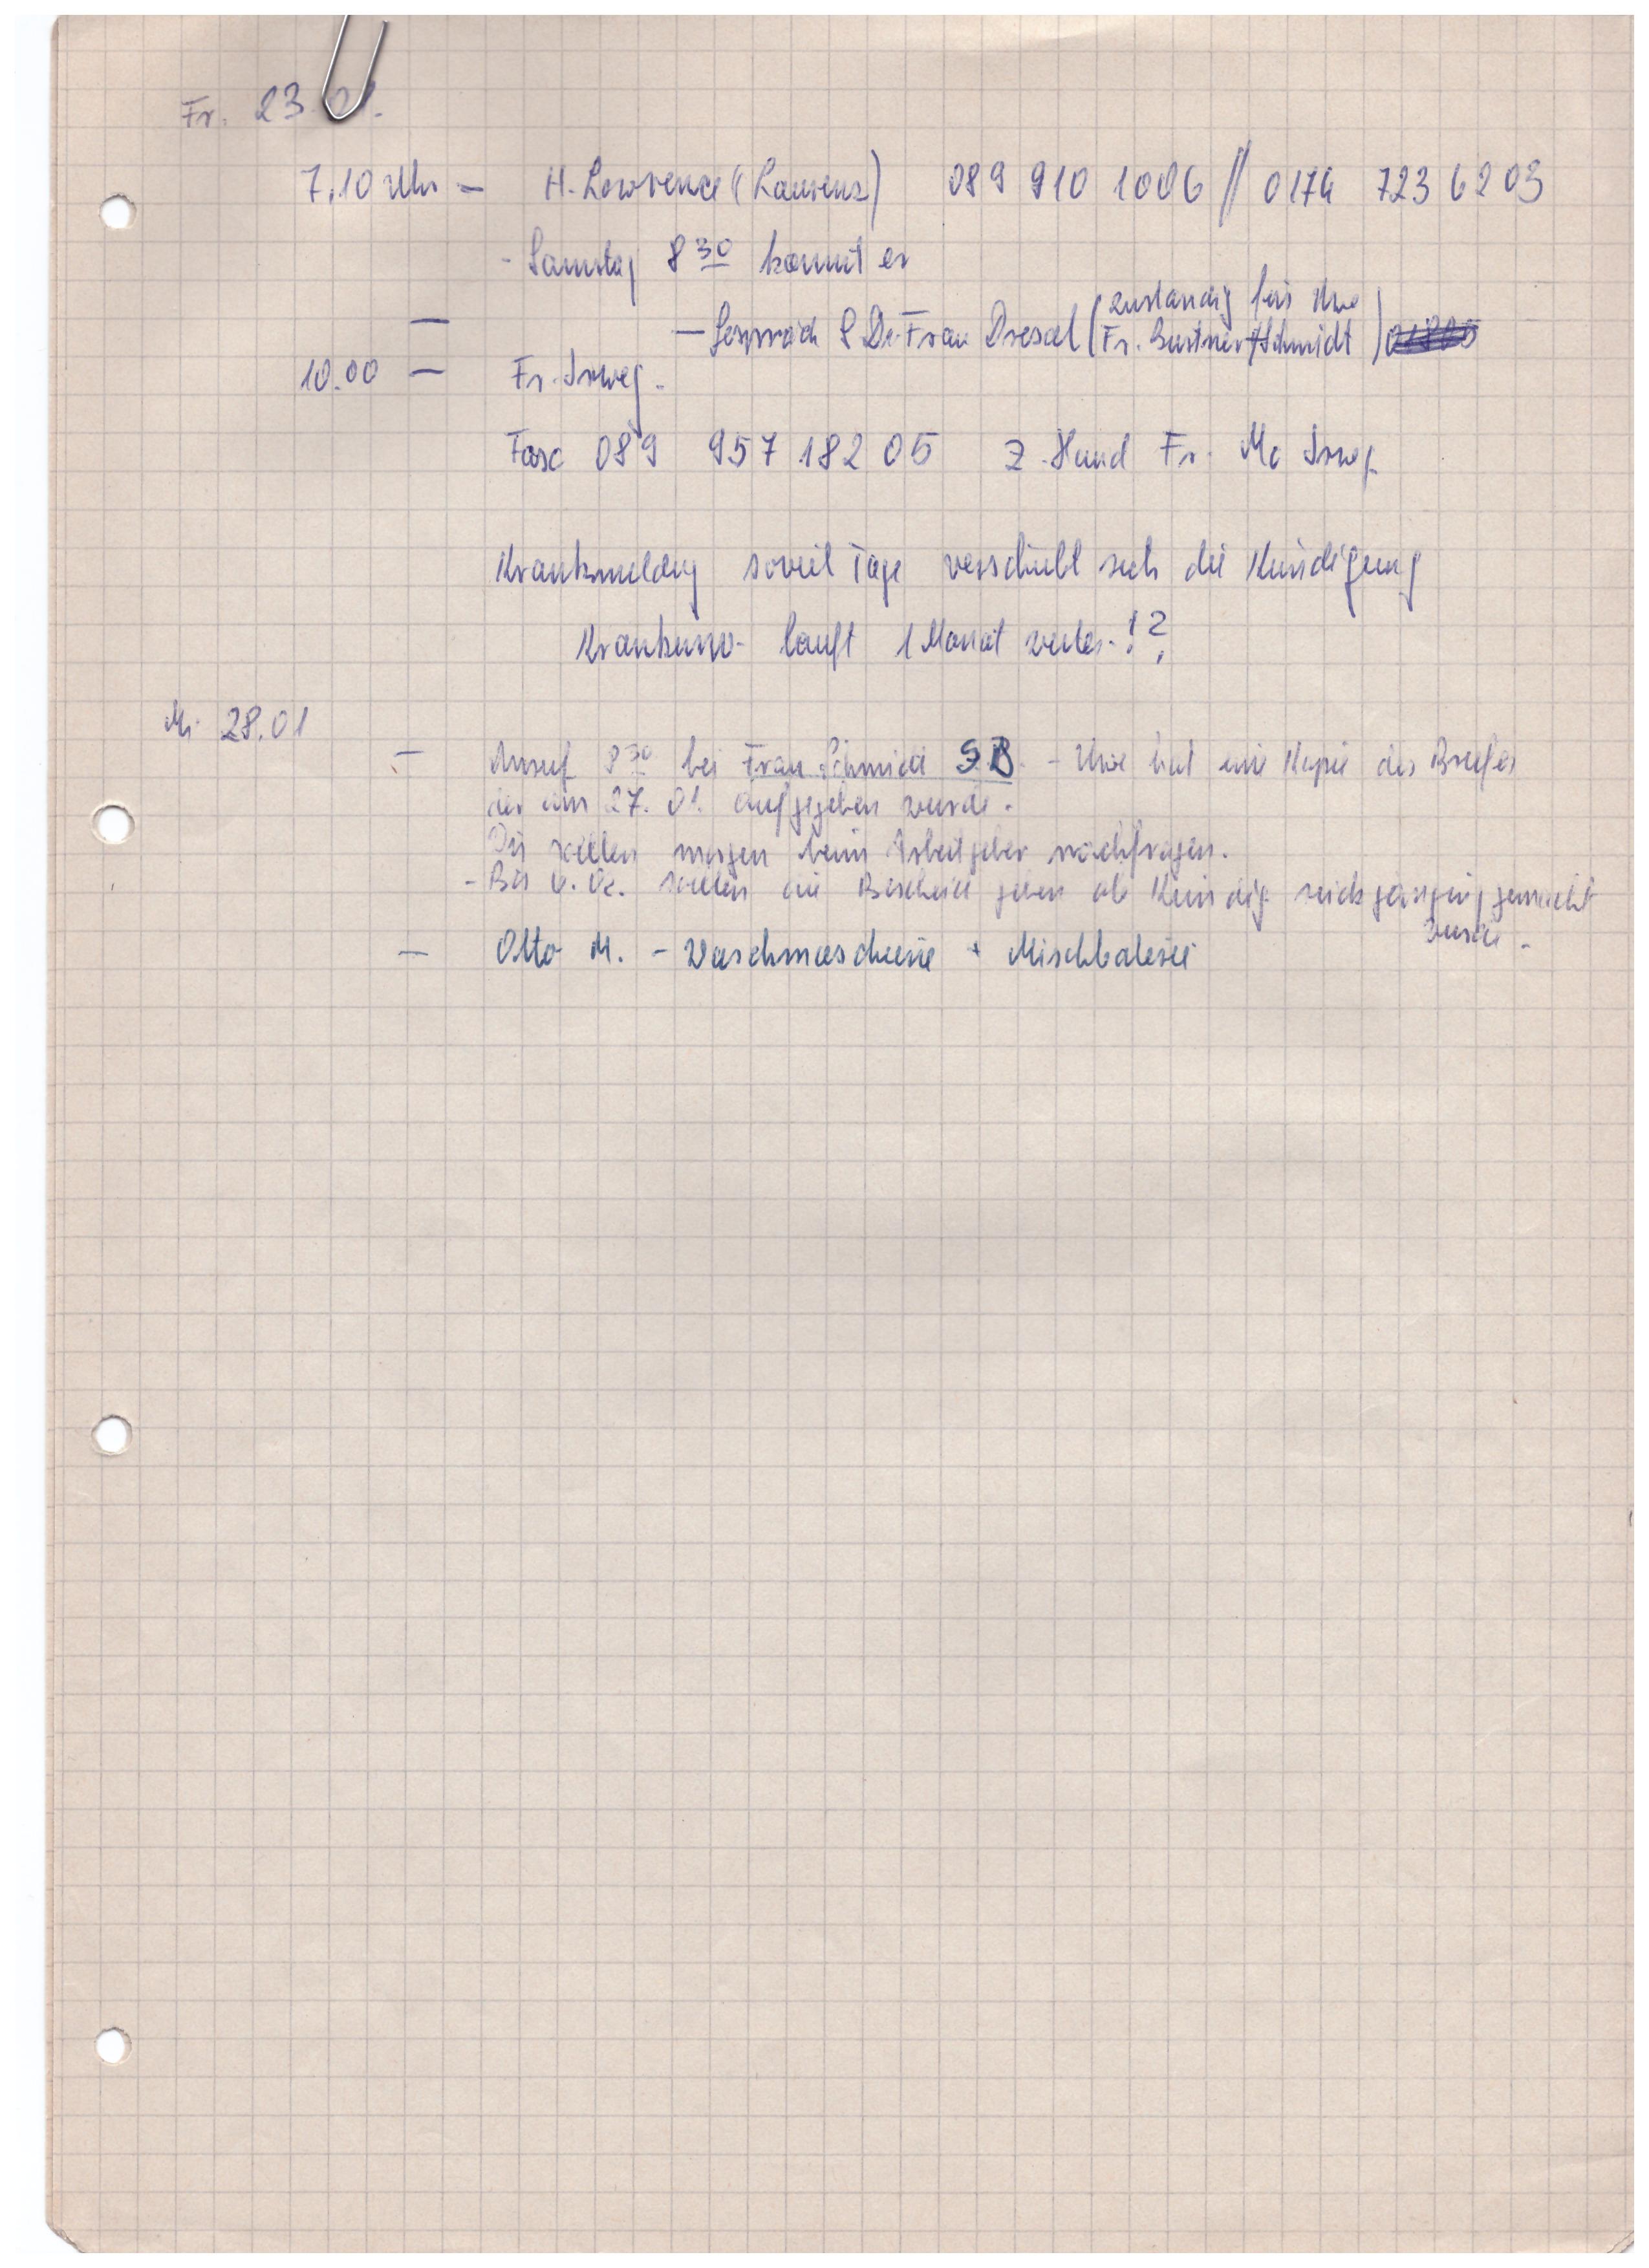 Fr. 23.01.
7.10 Uhr – H. Lawrence (Laurenz) 089 910 1006 // 0174 723 6203
- Samstag 8 30 kommt er
– – Gespräch Frau Drexel (zuständig für Uwe
Fr. /Schmidt)
10.00 – Fr. Irweg.
Fax 089 957 182 05 z. Hand Fr. Mc Irweg
Krankmeldung soviel Tage verschiebt sich die Kündigung
lauft 1 Monat weiter. !?
Mi 28.01
– Anruf 8 30 bei Frau Schmidt SB. - Uwe hat eine Kopie des Briefes
der am 27. 01. aufgegeben wurde.
Die sollen morgen beim Arbeitgeber nachfragen.
- Bis 6. 02. sollen die Bescheid geben ob Kündig. rückgängig gemacht
wurde.
– Otto M. - Waschmaschine + Mischbaterie